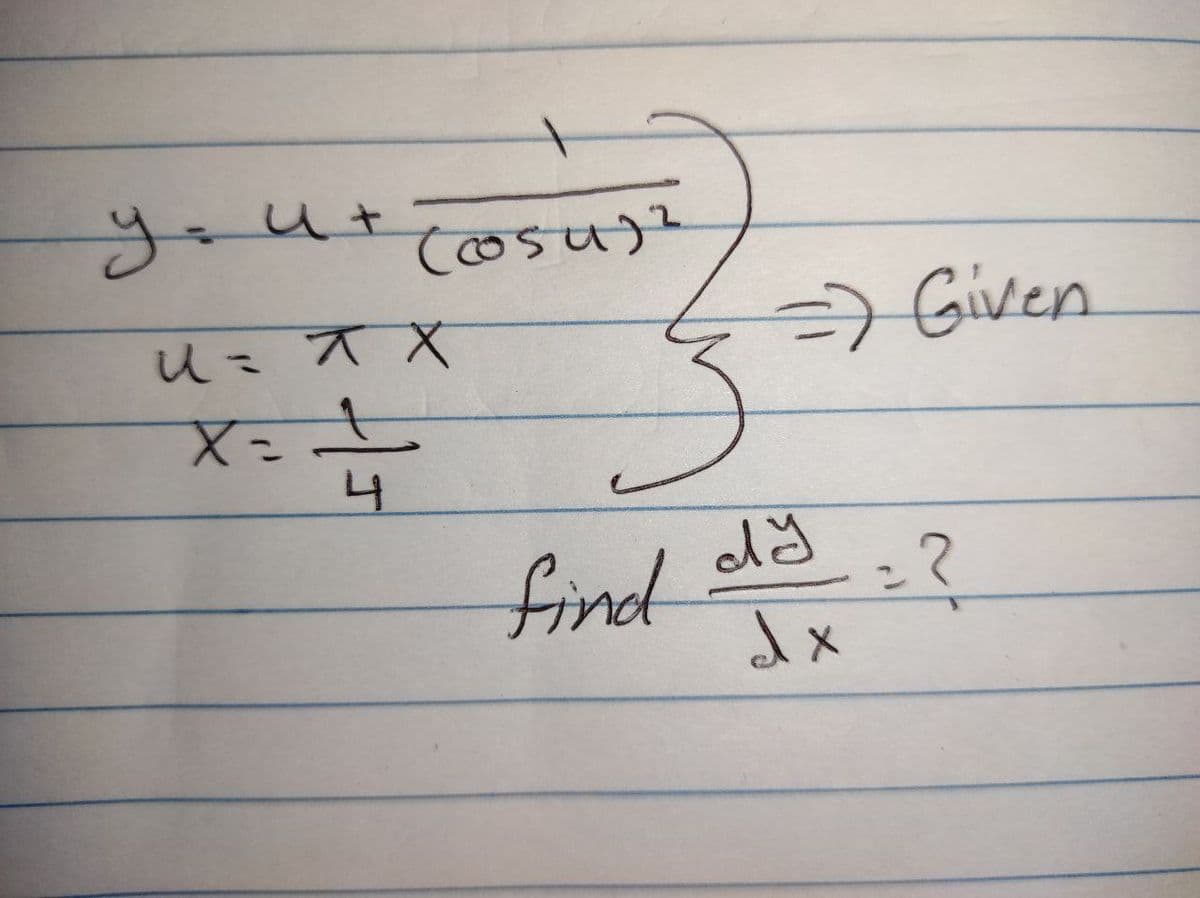 y = u + 1/(cos u)²
u = π x
x = 1/4
} => Given
find dy/dx = ?